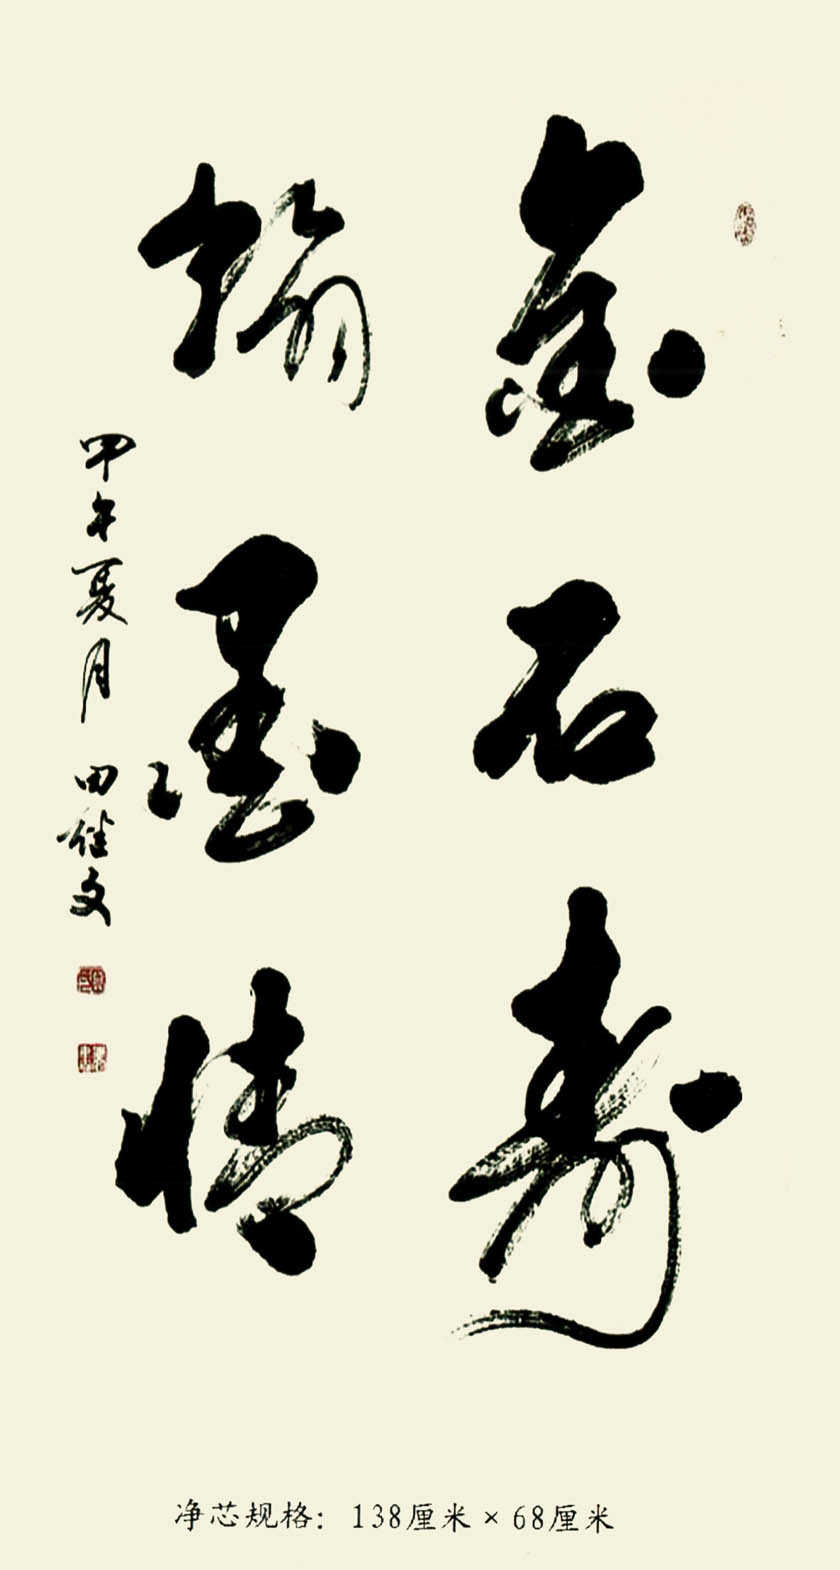 金石寿
翰墨情
甲午夏月 田继文
净芯规格：138厘米×68厘米